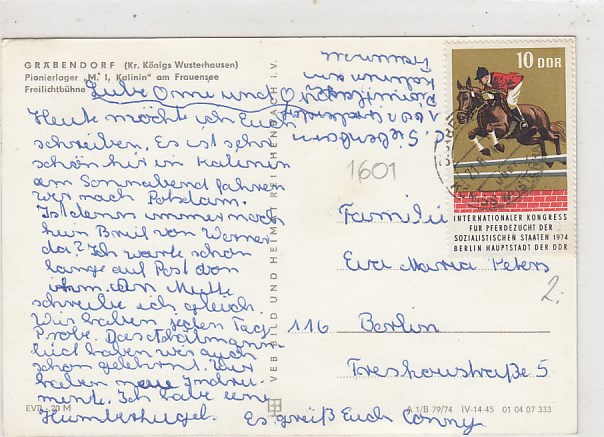 GRÄBENDORF (Kr. Königs Wusterhausen)
Pionierlager „M. I. Kalinin" am Frauensee
Freilichtbühne
Liebe Omi und Opi
Heute möchte ich Euch
schreiben. Es ist sehr
schön hier in Kalinin
am Sonnabend fahren
wir nach Potsdam.
Ist denn immer noch
kein Brief von Werner
da? Ich warte schon
lange auf Post von
ihm. An Mutti
schreibe ich gleich.
Wir haben jeden Tag
Probe. Das
Lied haben wir auch
schon gelernt. Wir
haben neue Instru-
mente. Ich habe eine
Es grüß Euch Conny
EVP -,20 M
VEB BILD UND HEIMAT REICHENBACH i. V.
A 1/B 79/74 IV-14-45 01 04 07 333
10 DDR
INTERNATIONALER KONGRESS
FÜR PFERDEZUCHT DER
SOZIALISTISCHEN STAATEN 1974
BERLIN HAUPTSTADT DER DDR
1601
Familie
Eva Maria Peters
116 Berlin
5
2.-